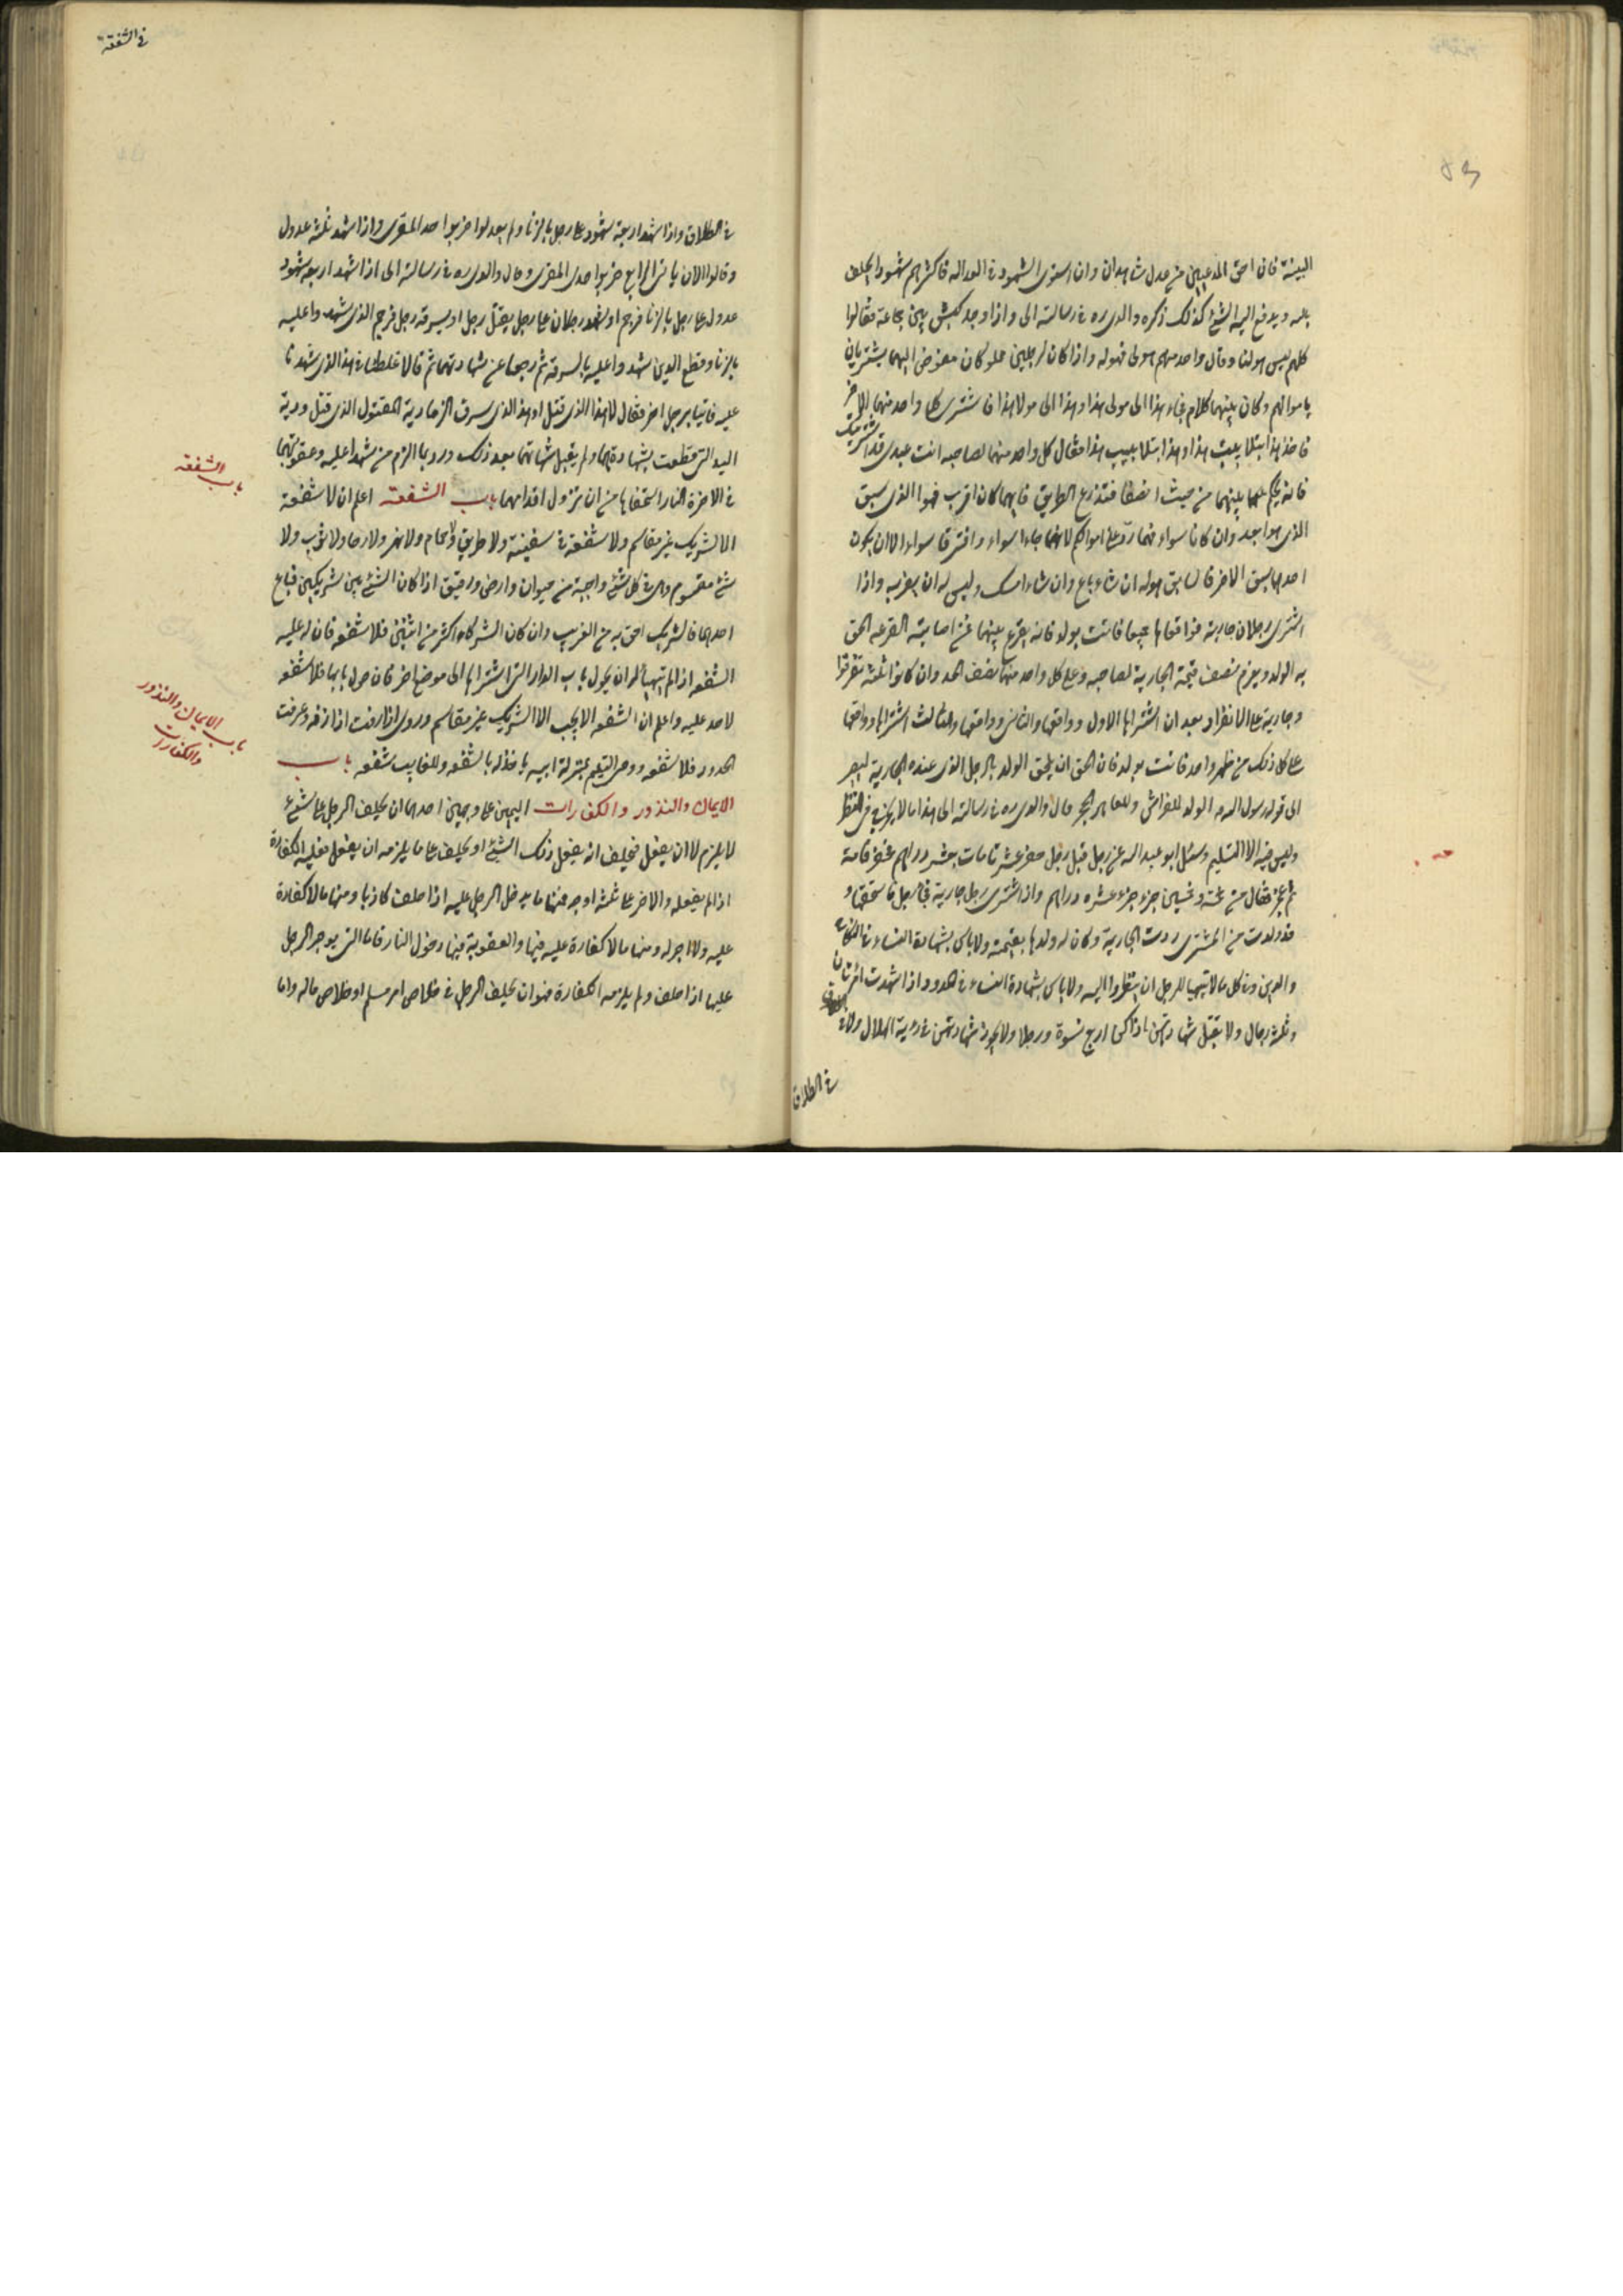 البينة فان احق المدعيين من عدل شاهدان وان استوى الشهود في العدالة فاكثرهم شهودا يحلف
بالله ويدفع اليه الشئ كذلك ذكره والدى ره في رسالته الى واذا وجد كيس بين جماعة فقالوا
كلهم ليس هو لنا وقال واحد منهم هو لى فهو له واذا كان لرجلين مملوكان مفوض اليهما يشتريان
باموالهم وكان بينهما كلام فجاء هذا الى مولى هذا وهذا الى مولا هذا فاشترى كل واحد منهما الاخر
فاخذ هذا بتلابيب هذا وهذا بتلابيب هذا فقال كل واحد منهما لصاحبه انت عبدى قد اشتريتك
فانه يحكم بينهما من حيث افترقا فتذرع الطريق فايهما كان اقرب فهو الذى سبق
الذى هو ابعد وان كانا سواء فهما رد على مواليهم لانهما جاءا سواء وافترقا سواء الا ان يكون
احدهما سبق الاخر فالسابق هو له ان شاء باع وان شاء امسك وليس له ان يضربه واذا
اشترى رجلان جارية فواقعاها جميعا فاتت بولد فانه يقرع بينهما فمن اصابته القرعة الحق
به الولد ويغرم نصف قيمة الجارية لصاحبه وعلى كل واحد منهما نصف الحد وان كانوا ثلثة
وجارية على الانفراد بعد ان اشتراها الاول وواقعها والثانى وواقعها والثالث اشتراها وواقعها
على كل ذلك من طهر واحد فاتت بولد فان الحق ان يلحق الولد بالرجل الذى عنده الجارية ليصير
الى قول رسول الله الولد للفراش وللعاهر الحجر قال والدى ره في رسالته الى هذا ما لا يخرج في النظر
وليس فيه الا التسليم وسئل ابو عبد الله عن رجل قبل رجل حفر عشر قامات بعشرة دراهم فحفر قامة
ثم عجز فقال من خمسة وخمسين جزء جزء عشرة دراهم واذا اشترى رجل جارية فجاء رجل فاستحقها و
قد ولدت من المشترى ردت الجارية وكان له ولدها بقيمته ولا باس بشهادة النساء في النكاح
والدين وفي كل ما لا يتهيا للرجل ان ينظروا اليه ولا باس بشهادة النساء في الحدود اذا شهدت امرءتان
وثلثة رجال ولا يقبل شهادتهن اذا كن اربع نسوة ورجلا ولا يجوز شهادتهن في رؤية الهلال ولا
في الطلاق
في الشفعة
في الطلاق واذا شهد اربعة شهود على رجل بالزنا ولم يعدلوا ضربوا حد المفترى واذا شهد ثلثة عدول
وقالوا الان ياتى الرابع ضربوا حد المفترى وقال والدى ره في رسالته الى اذا شهد اربعة شهود
عدول على رجل بالزنا فرجم او شهد رجلان على رجل بقتل رجل او بسرقة رجل فرجم الذى شهدوا عليه
بالزنا وقطع الذين شهدوا عليه بالسرقة ثم رجعا عن شهادتهما ثم قالا غلطنا في هذا الذى شهدنا
عليه فاتيا برجل اخر فقال لا هذا الذى قتل او هذا الذى سرق الزما دية المقتول الذى قتل ودية
اليد التى قطعت بشهادتهما ولم يقبل شهادتهما بعد ذلك وربما الزم من شهدا عليه وعقوبتهما
في الاخرة النار استحقاها من ان تزول اقدامهما باب الشفعة اعلم ان لا شفعة
الا لشريك غير مقاسم ولا شفعة في سفينة ولا طريق ولا حمام ولا نهر ولا رحا ولا ثوب ولا
شئ مقسوم وهى في كل شئ واجبة من حيوان وارض ورقيق اذا كان الشئ بين شريكين فباع
احدهما فالشريك احق به من الغريب وان كان الشركاء اكثر من اثنين فلا شفعة فان له عليه
الشفعة اذا لم يتهيأ له ان يحول باب الدار التى اشتراها الى موضع اخر فان حول بابها فلا شفعة
لاحد عليه واعلم ان الشفعة لا تجب الا لشريك غير مقاسم وروى اذا ارفت اذا ازفه وعرفت
الحدود فلا شفعة ووصى اليتيم بمنزلة ابيه ياخذ له بالشفعة وللغايب شفعة باب
الايمان والنذور والكفارات اليمين على وجهين احدهما ان يحلف الرجل على شئ
لا يلزم لا ان يفعل فيحلف انه يفعل ذلك الشئ او يحلف على ما يلزمه ان يفعل فعليه الكفارة
اذا لم يفعله والاخر على ثلثة اوجه فمنها ما يوجر الرجل عليه اذا حلف كاذبا ومنها ما لا كفارة
عليه ولا اجر له ومنها ما لا كفارة عليه فيها والعقوبة فيها دخول النار فاما التى يوجر الرجل
عليها اذا حلف ولم يلزمه الكفارة فهو ان يحلف الرجل في خلاص امرء مسلم او خلاص ماله واما
باب الشفعة
باب الايمان والنذور
والكفارات